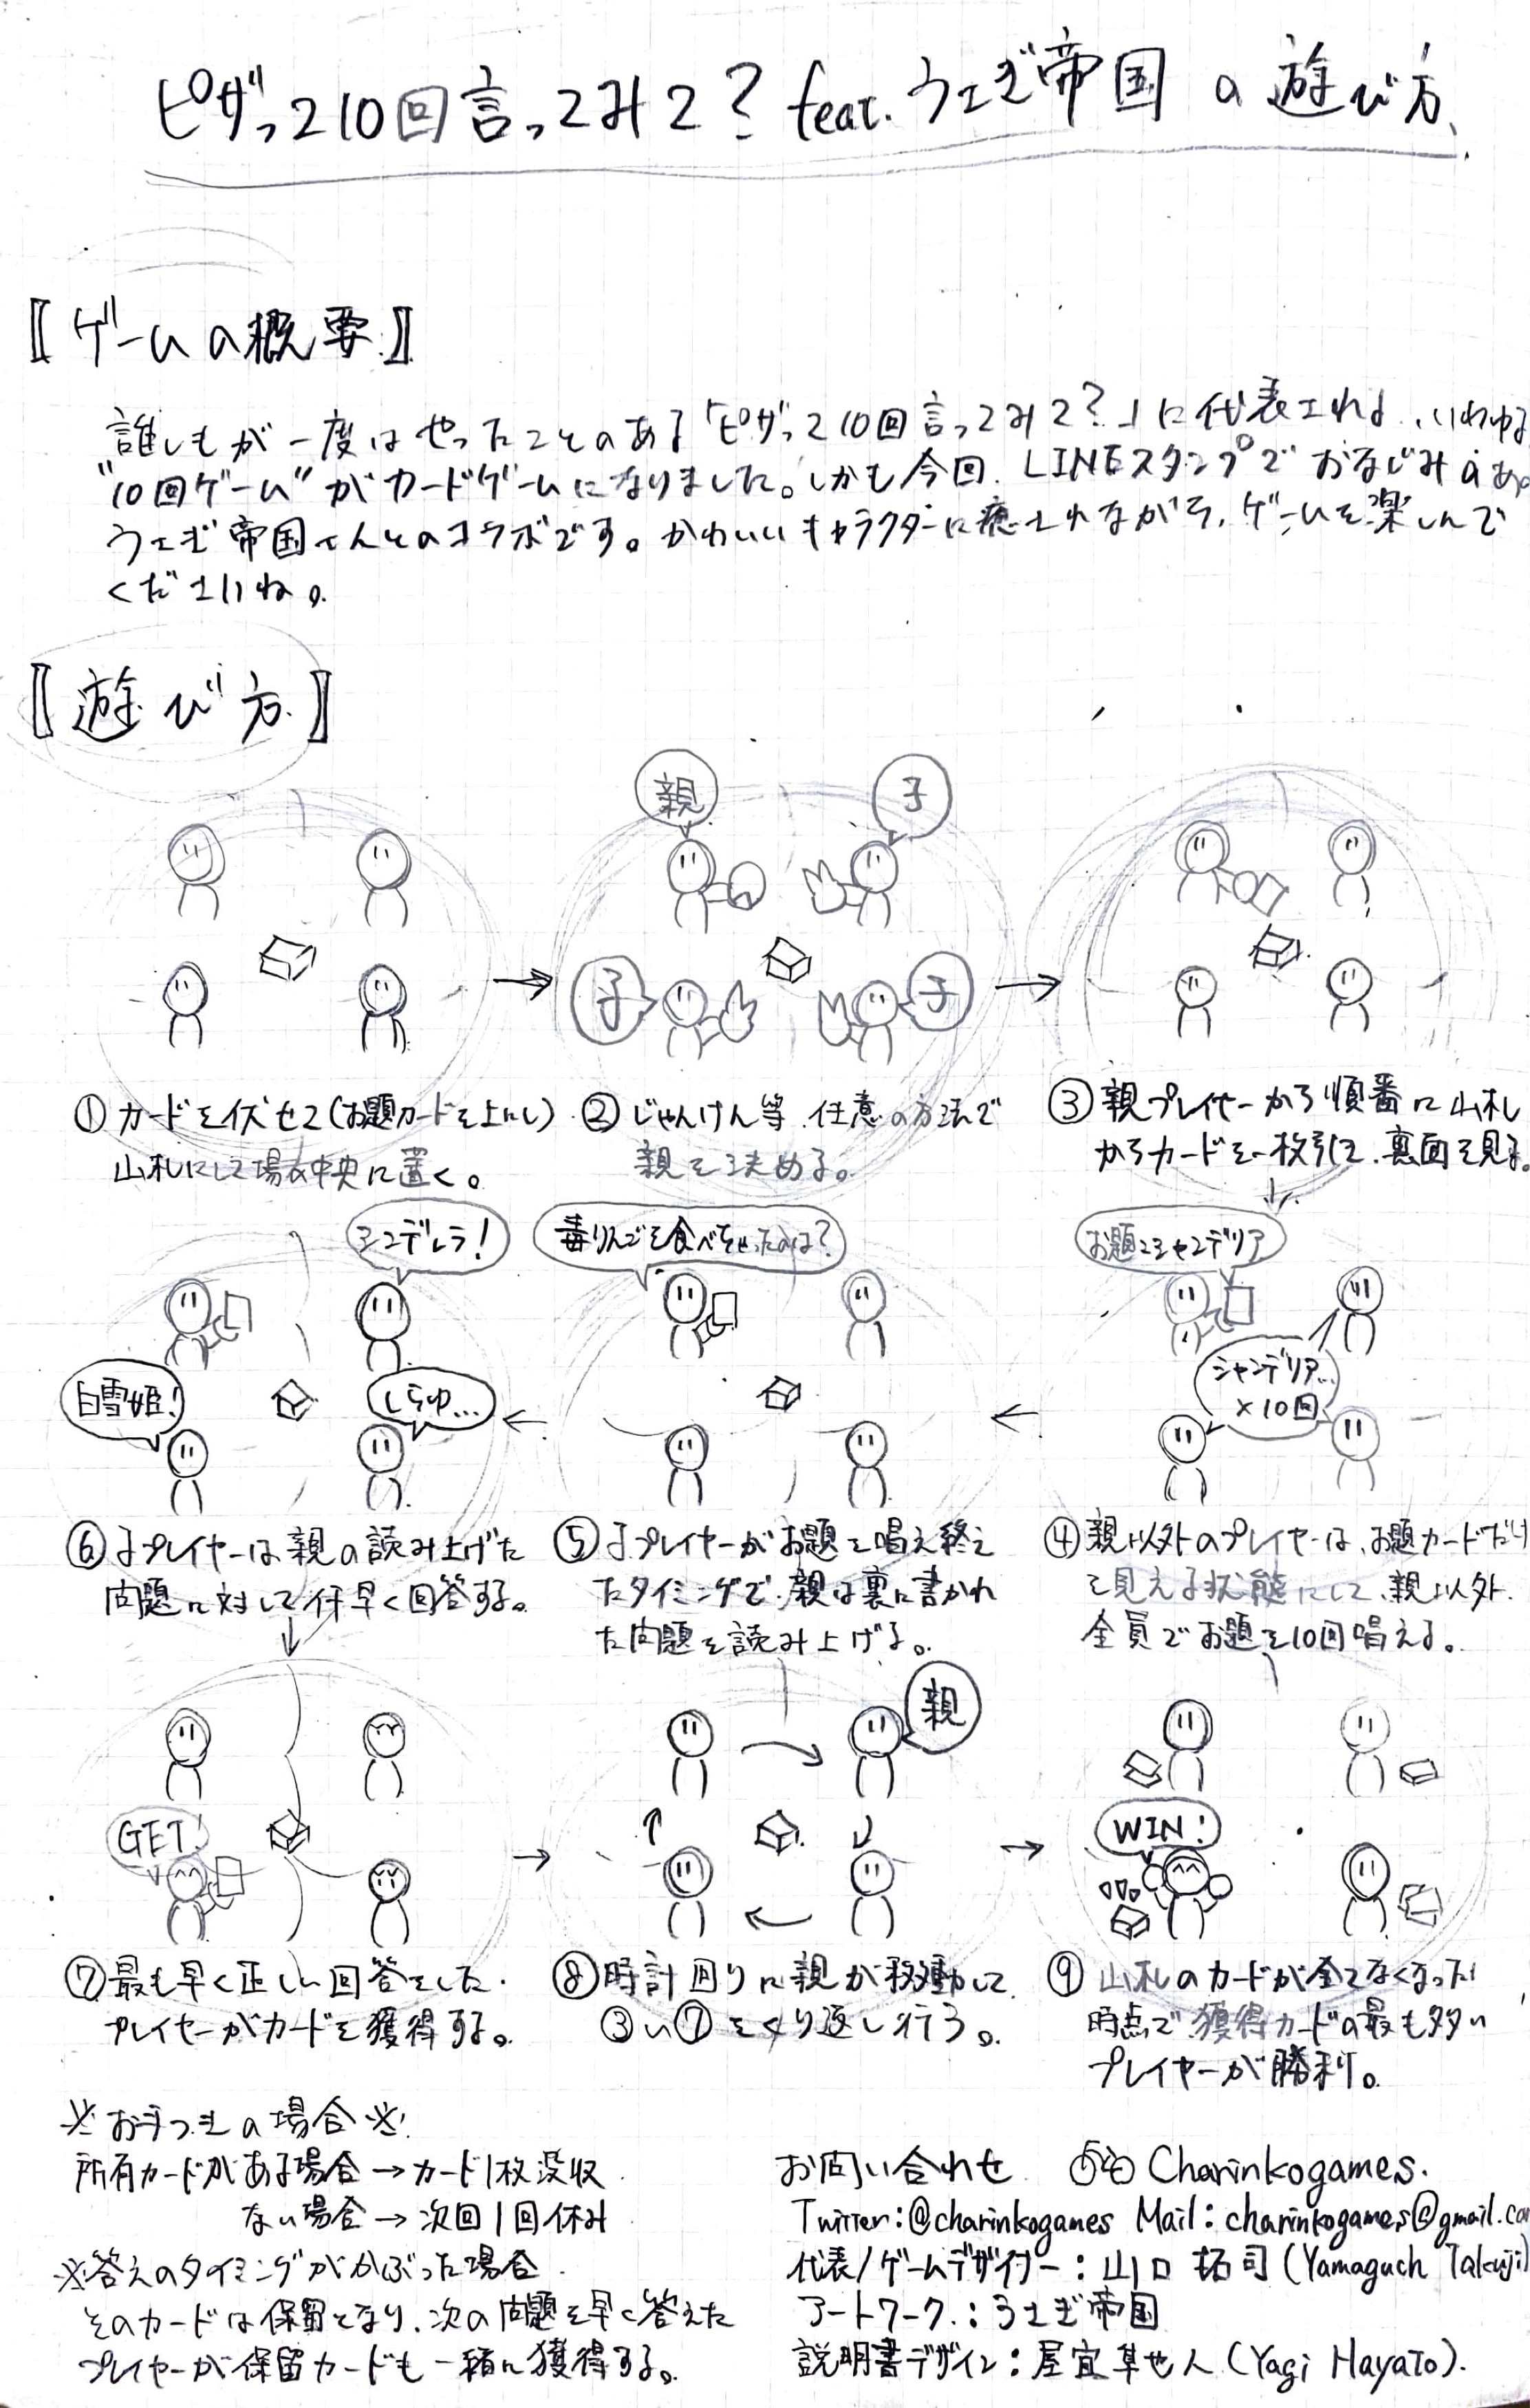 ピザって10回言ってみて? feat. うさぎ帝国 の 遊び方
〚ゲームの概要〛
誰しもが一度はやったことのある「ピザって10回言ってみて?」に代表される、いわゆる
"10回ゲーム"がカードゲームになりました。しかも今回、LINEスタンプでおなじみのあの
うさぎ帝国さんとのコラボです。かわいいキャラクターに癒されながら、ゲームを楽しんで
くださいね。
〚遊び方〛
親
子
子
子
①カードを伏せて(お題カードを上にし)
山札にして場の中央に置く。
②じゃんけん等、任意の方法で
親を決める。
③親プレイヤーから順番に山札
からカードを一枚引いて、裏面を見る。
お題:シャンデリア
シャンデリア…
×10回
④親以外のプレイヤーは、お題カードだけ
を見える状態にして、親以外
全員でお題を10回唱える。
毒りんごを食べちゃったのは?
⑤子プレイヤーがお題を唱え終え
たタイミングで、親は裏に書かれ
た問題を読み上げる。
シンデレラ!
白雪姫!
しらゆ…
⑥子プレイヤーは親の読み上げた
問題に対して仔早く回答する。
GET!
⑦最も早く正しい回答をした
プレイヤーがカードを獲得する。
親
⑧時計回りに親が移動して
③〜⑦をくり返し行う。
WIN!
⑨山札のカードが全てなくなった
時点で獲得カードの最も多い
プレイヤーが勝利。
※お手つきの場合※
所有カードがある場合→カード1枚没収
ない場合→次回1回休み
※答えのタイミングがかぶった場合
そのカードは保留となり、次の問題を早く答えた
プレイヤーが保留カードも一緒に獲得する。
お問い合わせ Charinkogames.
Twitter:@charinkogames Mail:charinkogames@gmail.co
代表/ゲームデザイナー:山口 拓司(Yamaguch Takuji)
アートワーク:うさぎ帝国
説明書デザイン:屋宜隼也人(Yagi Hayato).